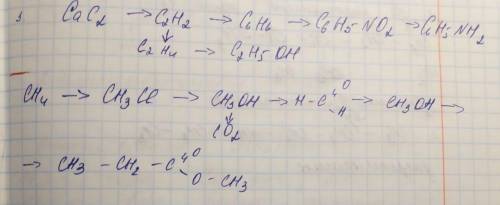 3 CaC2 → C2H2 → C6H6 → C6H5-NO2 → C6H5NH2
↓
C2H4 → C2H5OH
CH4 → CH3Cl → CH3OH → H-C O H → CH3OH →
↓
CO2
→ CH3 - CH2 - C O O - CH3